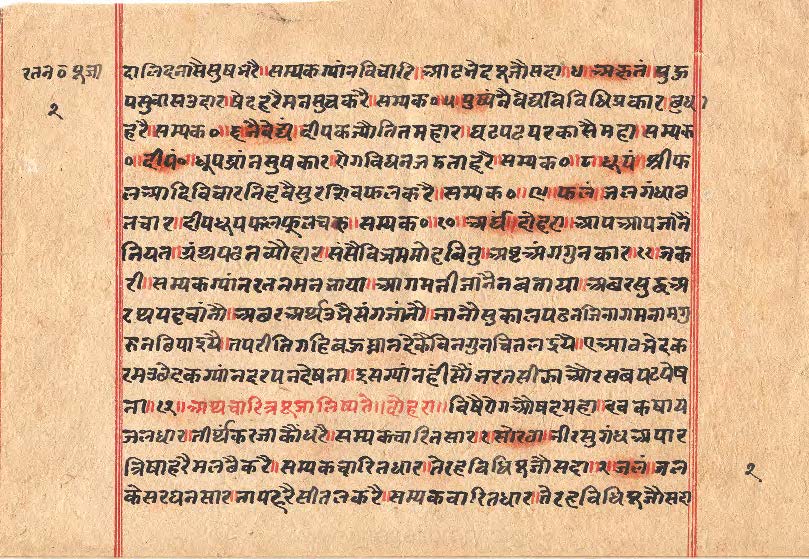 रतन० पूजा
२
दालिदनासैसुषभरै॥सम्यकग्यांनविचारि॥आठभेदपूजौसदा॥५॥अक्षतं॥पुहु
पसुवासउदार॥षेदहरैमनसुचकरै॥सम्यक०॥६॥पुष्पं॥नैवेद्यविविधिप्रकार॥क्षुधा
हरै॥सम्यक०॥७॥नैवेद्यं॥दीपकज्योतितमहार॥घटपटपरकासैमहा॥सम्यक
०॥दीपं॥धूपघ्रांनसुषकार॥रोगविघनजडताहरै॥सम्यक०॥८॥धूपं॥श्रीफ
लआदिविचार॥निहचैसुरशिवफलकरै॥सम्यक०॥९॥फलं॥जलगंधाच
तचार॥दीपधूपफलफूलचरू॥सम्यक०॥१०॥अर्घ॥दोहरा॥आपआपजांनै
नियत॥ग्रंथपठनव्यौहार॥संसैविभ्रममोहबिनु॥अष्टअंगगुनकार॥११॥जक
री॥सम्यकग्यांनरतनमनभाया॥आगमतीजानैनबताया॥अक्षरसुद्धअ
रथपहचांनौ॥अक्षरअर्थउभैसंगजांनौ॥जानौसुकालपठनजिनागमनामगु
रुनछिपाइयै॥तपरीतिगहिबहुमानदेकैबिनगुनचितलाइयै॥एआठभेदक
रमउछेदकग्यांनदरपनदेषना॥इसग्यांनहीसौंभरतसीझाऔरसबपटपेष
ना॥१२॥अथचारित्रपूजालिष्यते॥दोहरा॥विषैरोगऔषदमहा॥दवकषाय
जलधार॥तीर्थंकरजाकौंधरै॥सम्यकचारितसार॥१॥सोरठा॥नीरसुगंधअपार॥
त्रिषाहरैमलछैकरै॥सम्यकचारितधार॥तेरहविधिपूजौसदा॥१॥जलं॥जल
केसरघनसार॥तापहरैसीतलकरै॥सम्यकचारितधार॥तेरहविधिपूजौसदा
२